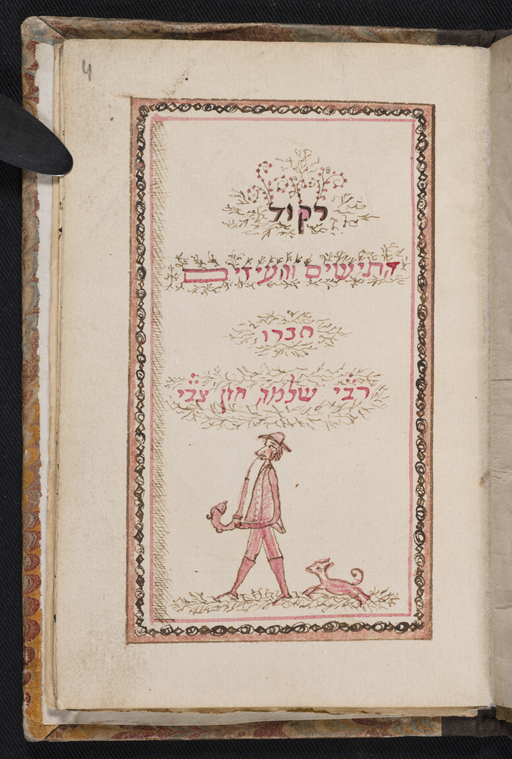 4
רקוד
התישים והעיזים
חברו
רבי שלמה חזן צבי